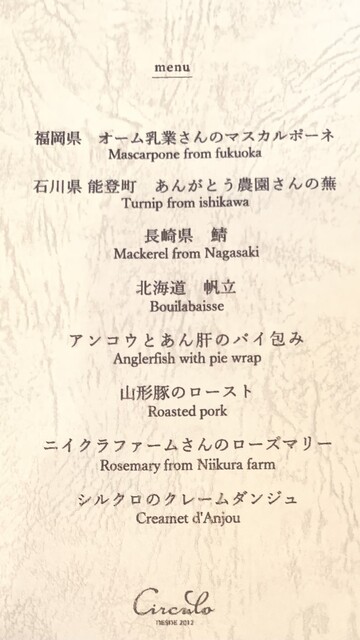 menu
福岡県　オーム乳業さんのマスカルポーネ
Mascarpone from fukuoka
石川県 能登町　あんがとう農園さんの蕪
Turnip from ishikawa
長崎県　鯖
Mackerel from Nagasaki
北海道　帆立
Bouilabaisse
アンコウとあん肝のパイ包み
Anglerfish with pie wrap
山形豚のロースト
Roasted pork
ニイクラファームさんのローズマリー
Rosemary from Niikura farm
シルクロのクレームダンジュ
Creamet d'Anjou
Circulo